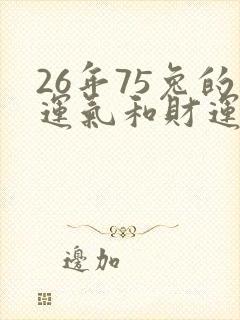 26年75兔的
運氣和財運
邊加